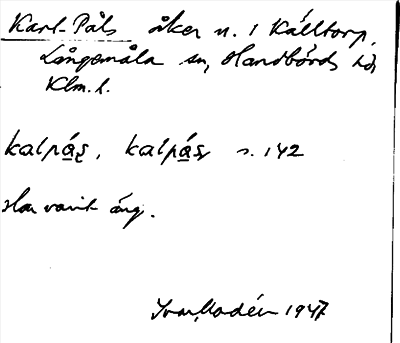 Karl-Påls åker n. 1 Källtorp,
Långemåla sn, Handbörds hd,
Klm. l.
kalpás, kalpás s. 142
Har varit äng.
Ivar Modéer 1947